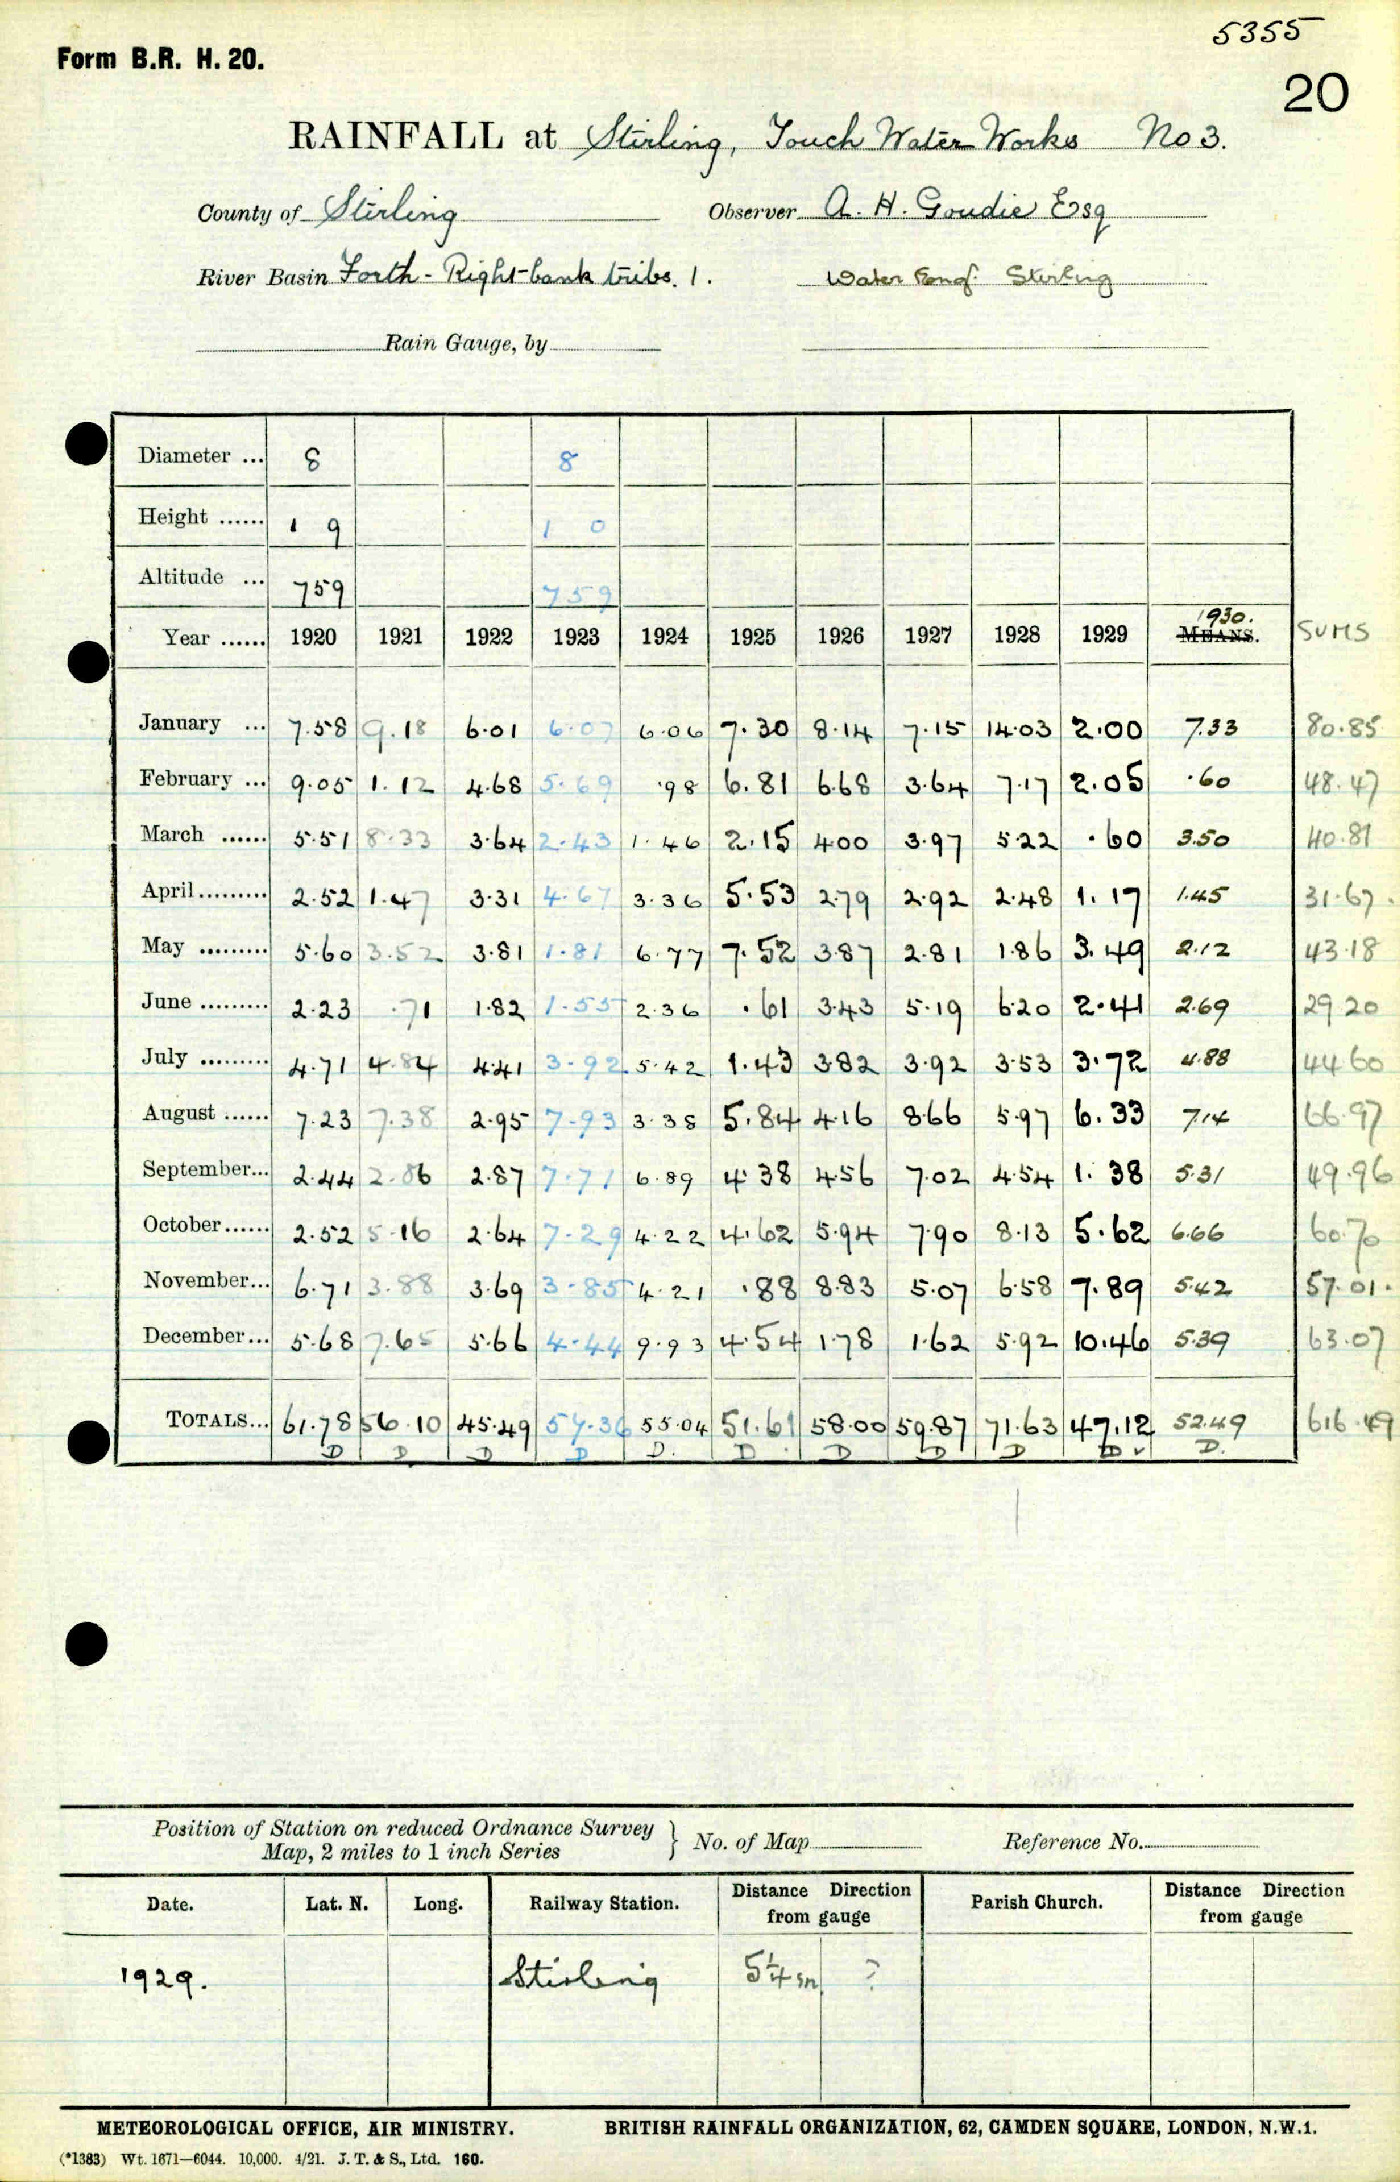 5355
Form B.R. H. 20.
20
RAINFALL at Stirling, Touch Water Works No 3.
County of Stirling Observer A. H. Goudie Esq
River Basin Forth - Right-bank tribs. 1. Water Engr. Stirling
Rain Gauge, by
Diameter ... 8 8
Height ...... 1 9 1 0
Altitude ... 759 759
1930.
Year ...... 1920 1921 1922 1923 1924 1925 1926 1927 1928 1929 MEANS. SUMS
January ... 7.58 9.18 6.01 6.07 6.06 7.30 8.14 7.15 14.03 2.00 7.33 80.85
February ... 9.05 1.12 4.68 5.69 .98 6.81 6.68 3.64 7.17 2.05 .60 48.47
March ...... 5.51 8.33 3.64 2.43 1.46 2.15 4.00 3.97 5.22 .60 3.50 40.81
April ......... 2.52 1.47 3.31 4.67 3.36 5.53 2.79 2.92 2.48 1.17 1.45 31.67.
May ......... 5.60 3.52 3.81 1.81 6.77 7.52 3.87 2.81 1.86 3.49 2.12 43.18
June ......... 2.23 .71 1.82 1.55 2.36 .61 3.43 5.19 6.20 2.41 2.69 29.20
July ......... 4.71 4.84 4.41 3.92 5.42 1.43 3.82 3.92 3.53 3.72 4.88 44.60
August ...... 7.23 7.38 2.95 7.93 3.38 5.84 4.16 8.66 5.97 6.33 7.14 66.97
September... 2.44 2.86 2.87 7.71 6.89 4.38 4.56 7.02 4.54 1.38 5.31 49.96
October...... 2.52 5.16 2.64 7.29 4.22 4.62 5.94 7.90 8.13 5.62 6.66 60.70
November... 6.71 3.88 3.69 3.85 4.21 .88 8.83 5.07 6.58 7.89 5.42 57.01.
December... 5.68 7.65 5.66 4.44 9.93 4.54 1.78 1.62 5.92 10.46 5.39 63.07
TOTALS... 61.78 56.10 45.49 57.36 55.04 51.61 58.00 59.87 71.63 47.12 52.49 616.49
D D D D D. D D D D D v D.
Position of Station on reduced Ordnance Survey
Map, 2 miles to 1 inch Series } No. of Map Reference No.
Date. Lat. N. Long. Railway Station. Distance Direction from gauge Parish Church. Distance Direction from gauge
1929. Stirling 5¼ m ?
METEOROLOGICAL OFFICE, AIR MINISTRY. BRITISH RAINFALL ORGANIZATION, 62, CAMDEN SQUARE, LONDON, N.W.1.
(*1383) Wt. 1671—6044. 10,000. 4/21. J. T. & S., Ltd. 160.